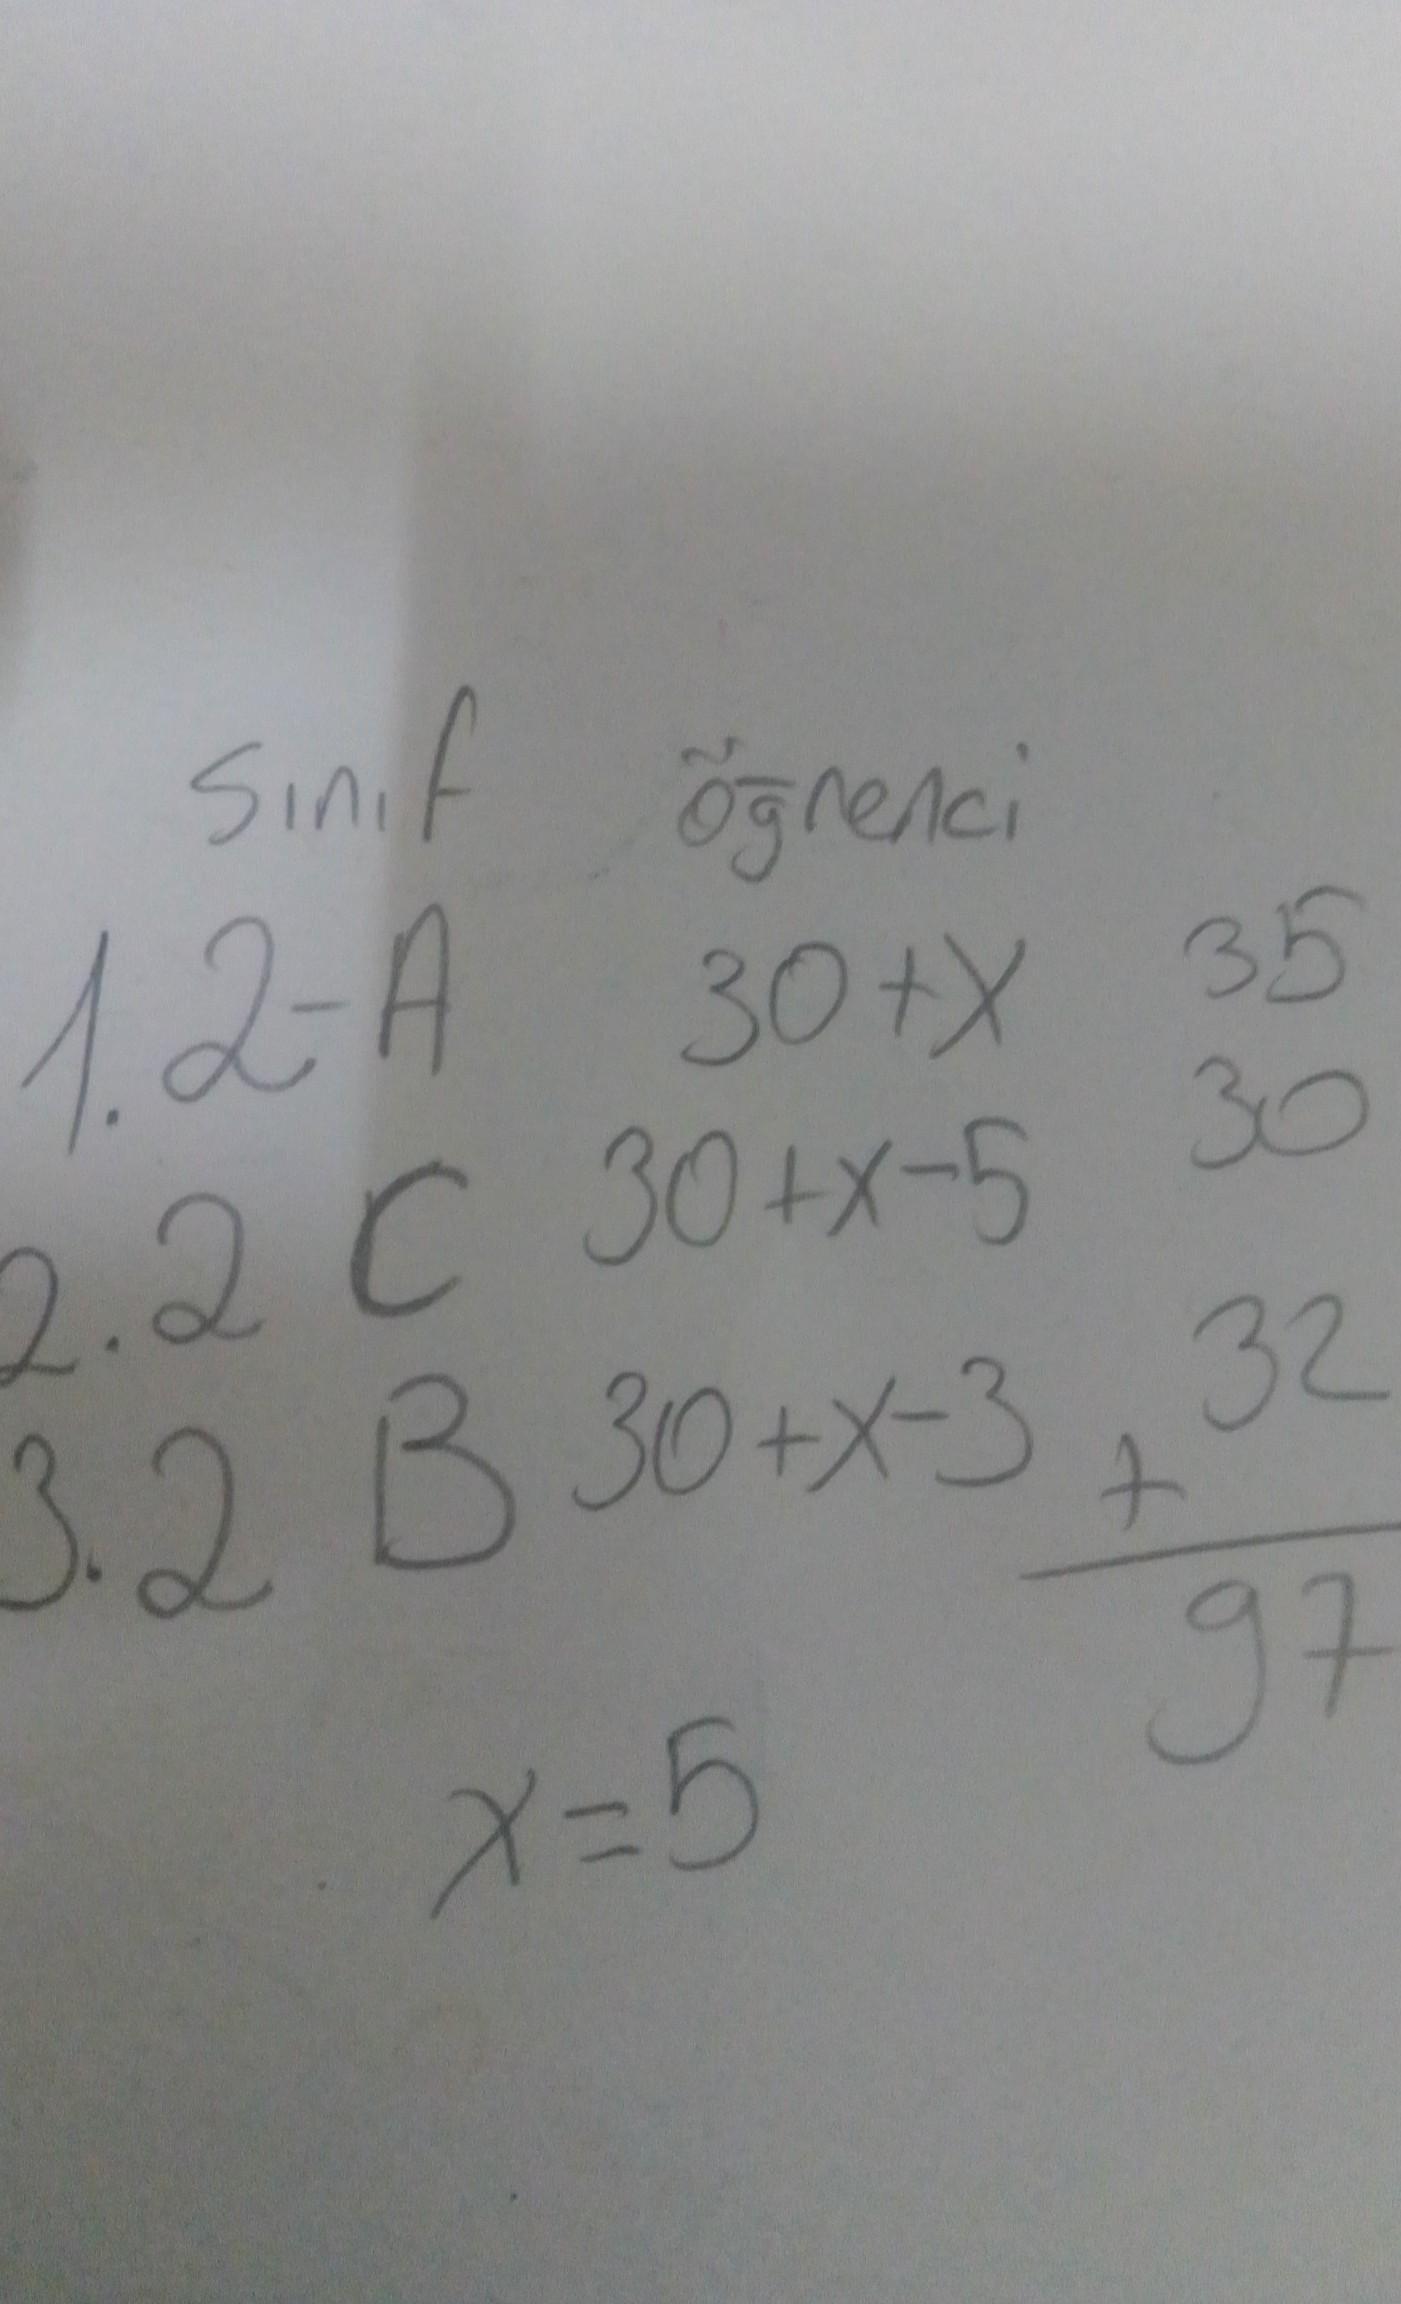 Sınıf öğrenci
1. 2-A 30+x 35
2. 2 C 30+x-5 30
3. 2 B 30+x-3 32
+
97
x=5